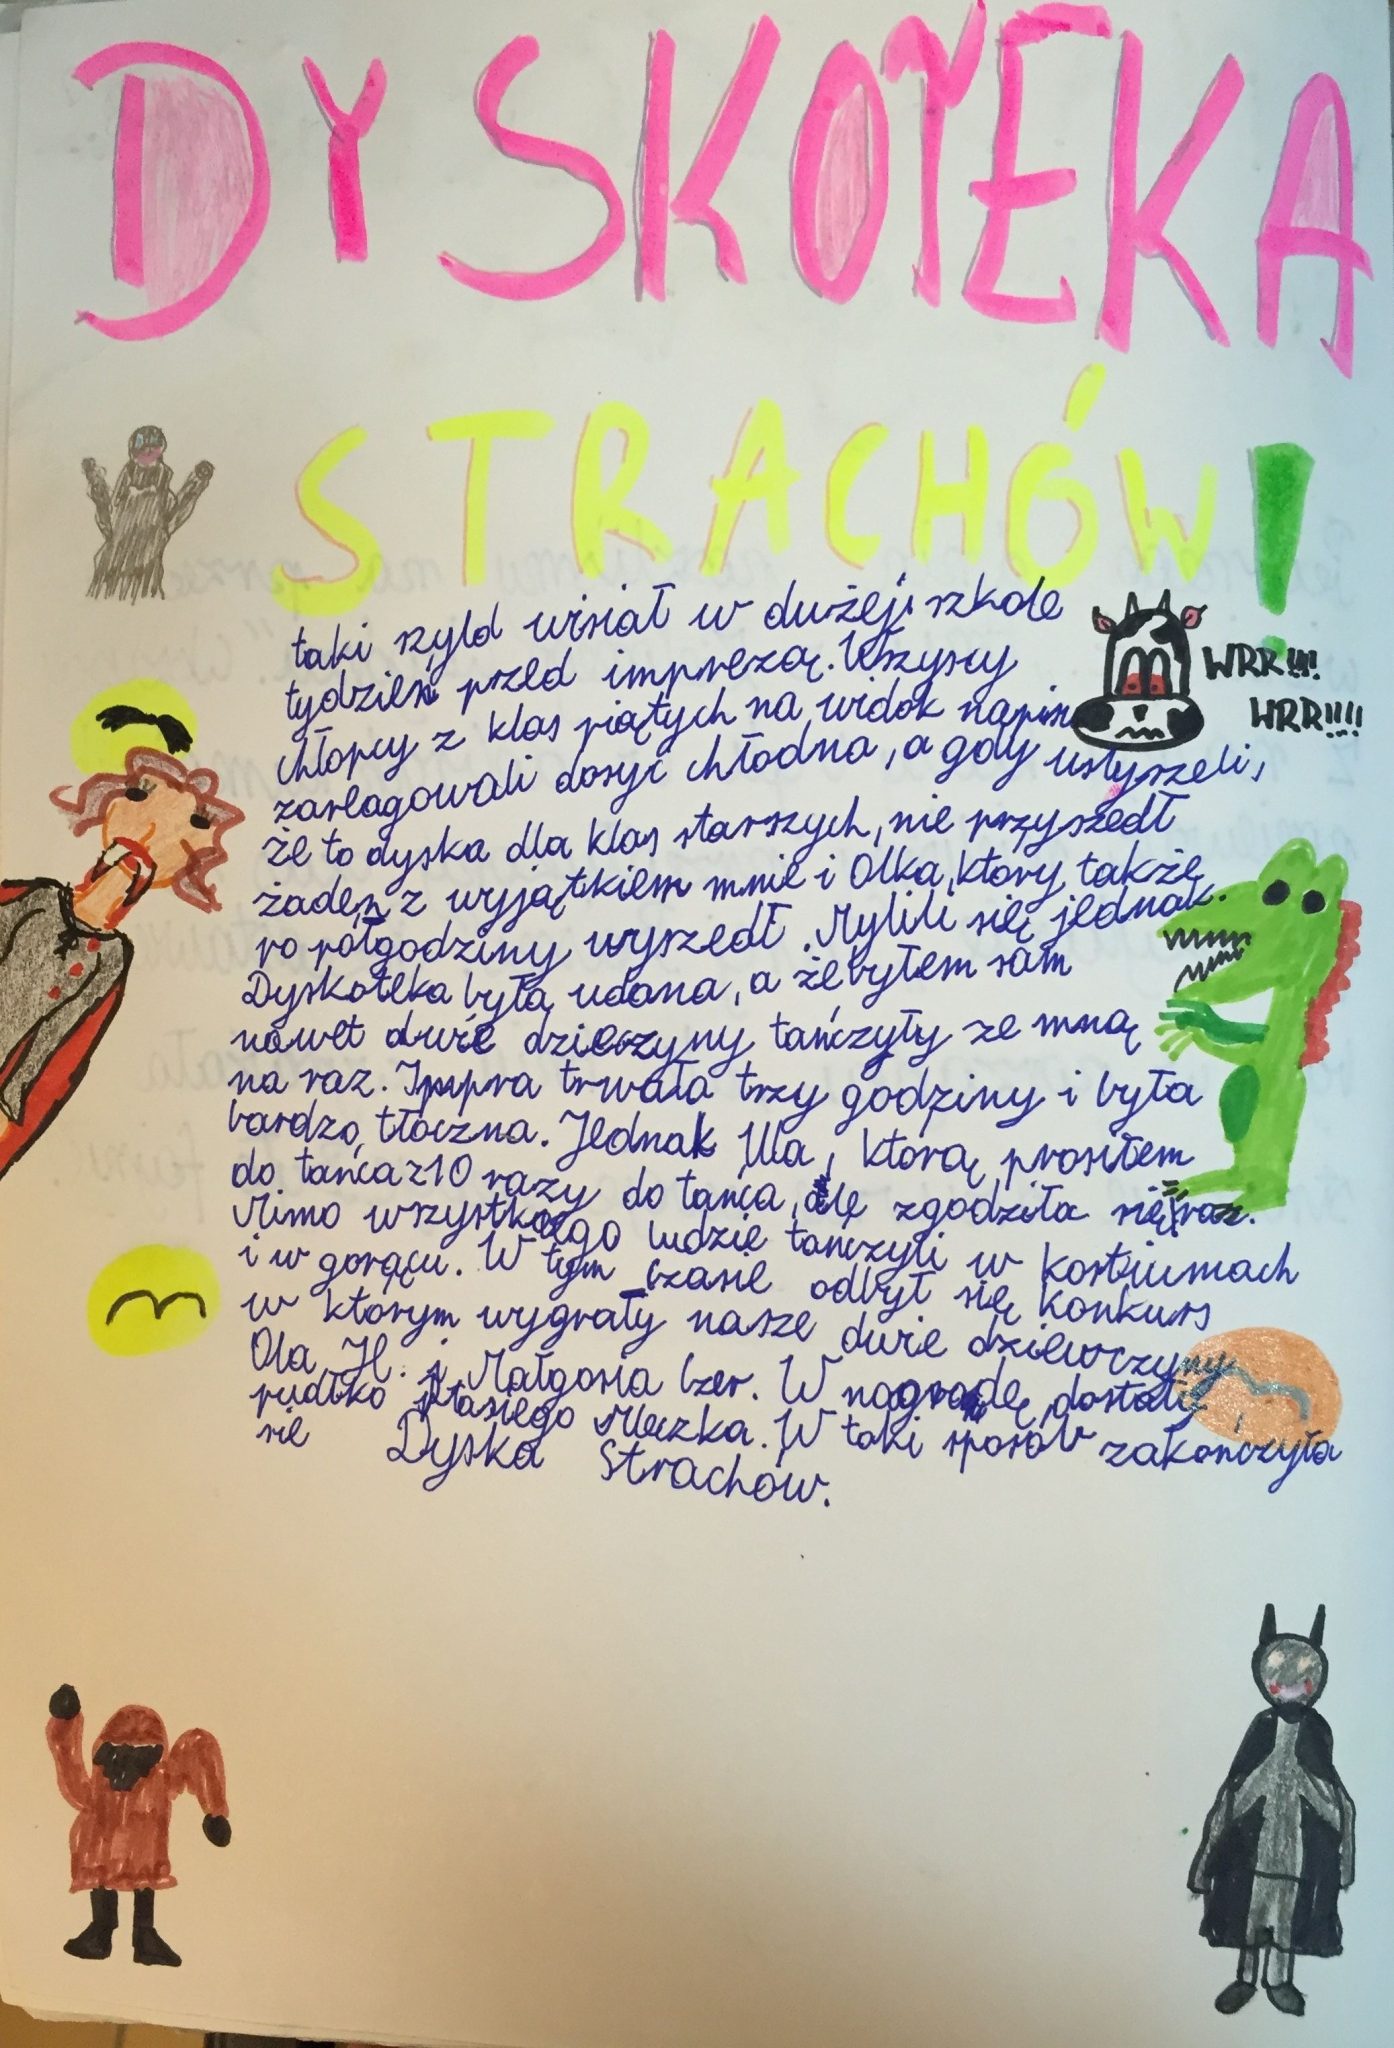 DYSKOTEKA
STRACHÓW!
taki szyld wisiał w dużej szkole
tydzień przed imprezą. Wszyscy
chłopcy z klas piątych na widok napisu
WRR!!!
WRR!!!!
zareagowali dosyć chłodna, a gdy usłyszeli,
że to dyska dla klas starszych, nie przyszedł
żaden z wyjątkiem mnie i Olka, który także
po półgodziny wyszedł. Mylili się jednak.
Dyskoteka była udana, a że byłem sam
nawet dwie dzieczyny tańczyły ze mną
na raz. Impra trwała trzy godziny i była
bardzo tłoczna. Jednak Ula, którą prosiłem
do tańca z 10 razy do tańca, ale zgodziła się raz.
Mimo wszystkiego ludzie tańczyli w kostiumach
i w gorącu. W tym czasie odbył się konkurs
w którym wygrały nasze dwie dziewczyny
Ola H. i Małgosia Czer. W nagrodę dostały
pudłko Ptasiego Mleczka. W taki sposób zakończyła
sie Dyska Strachów.